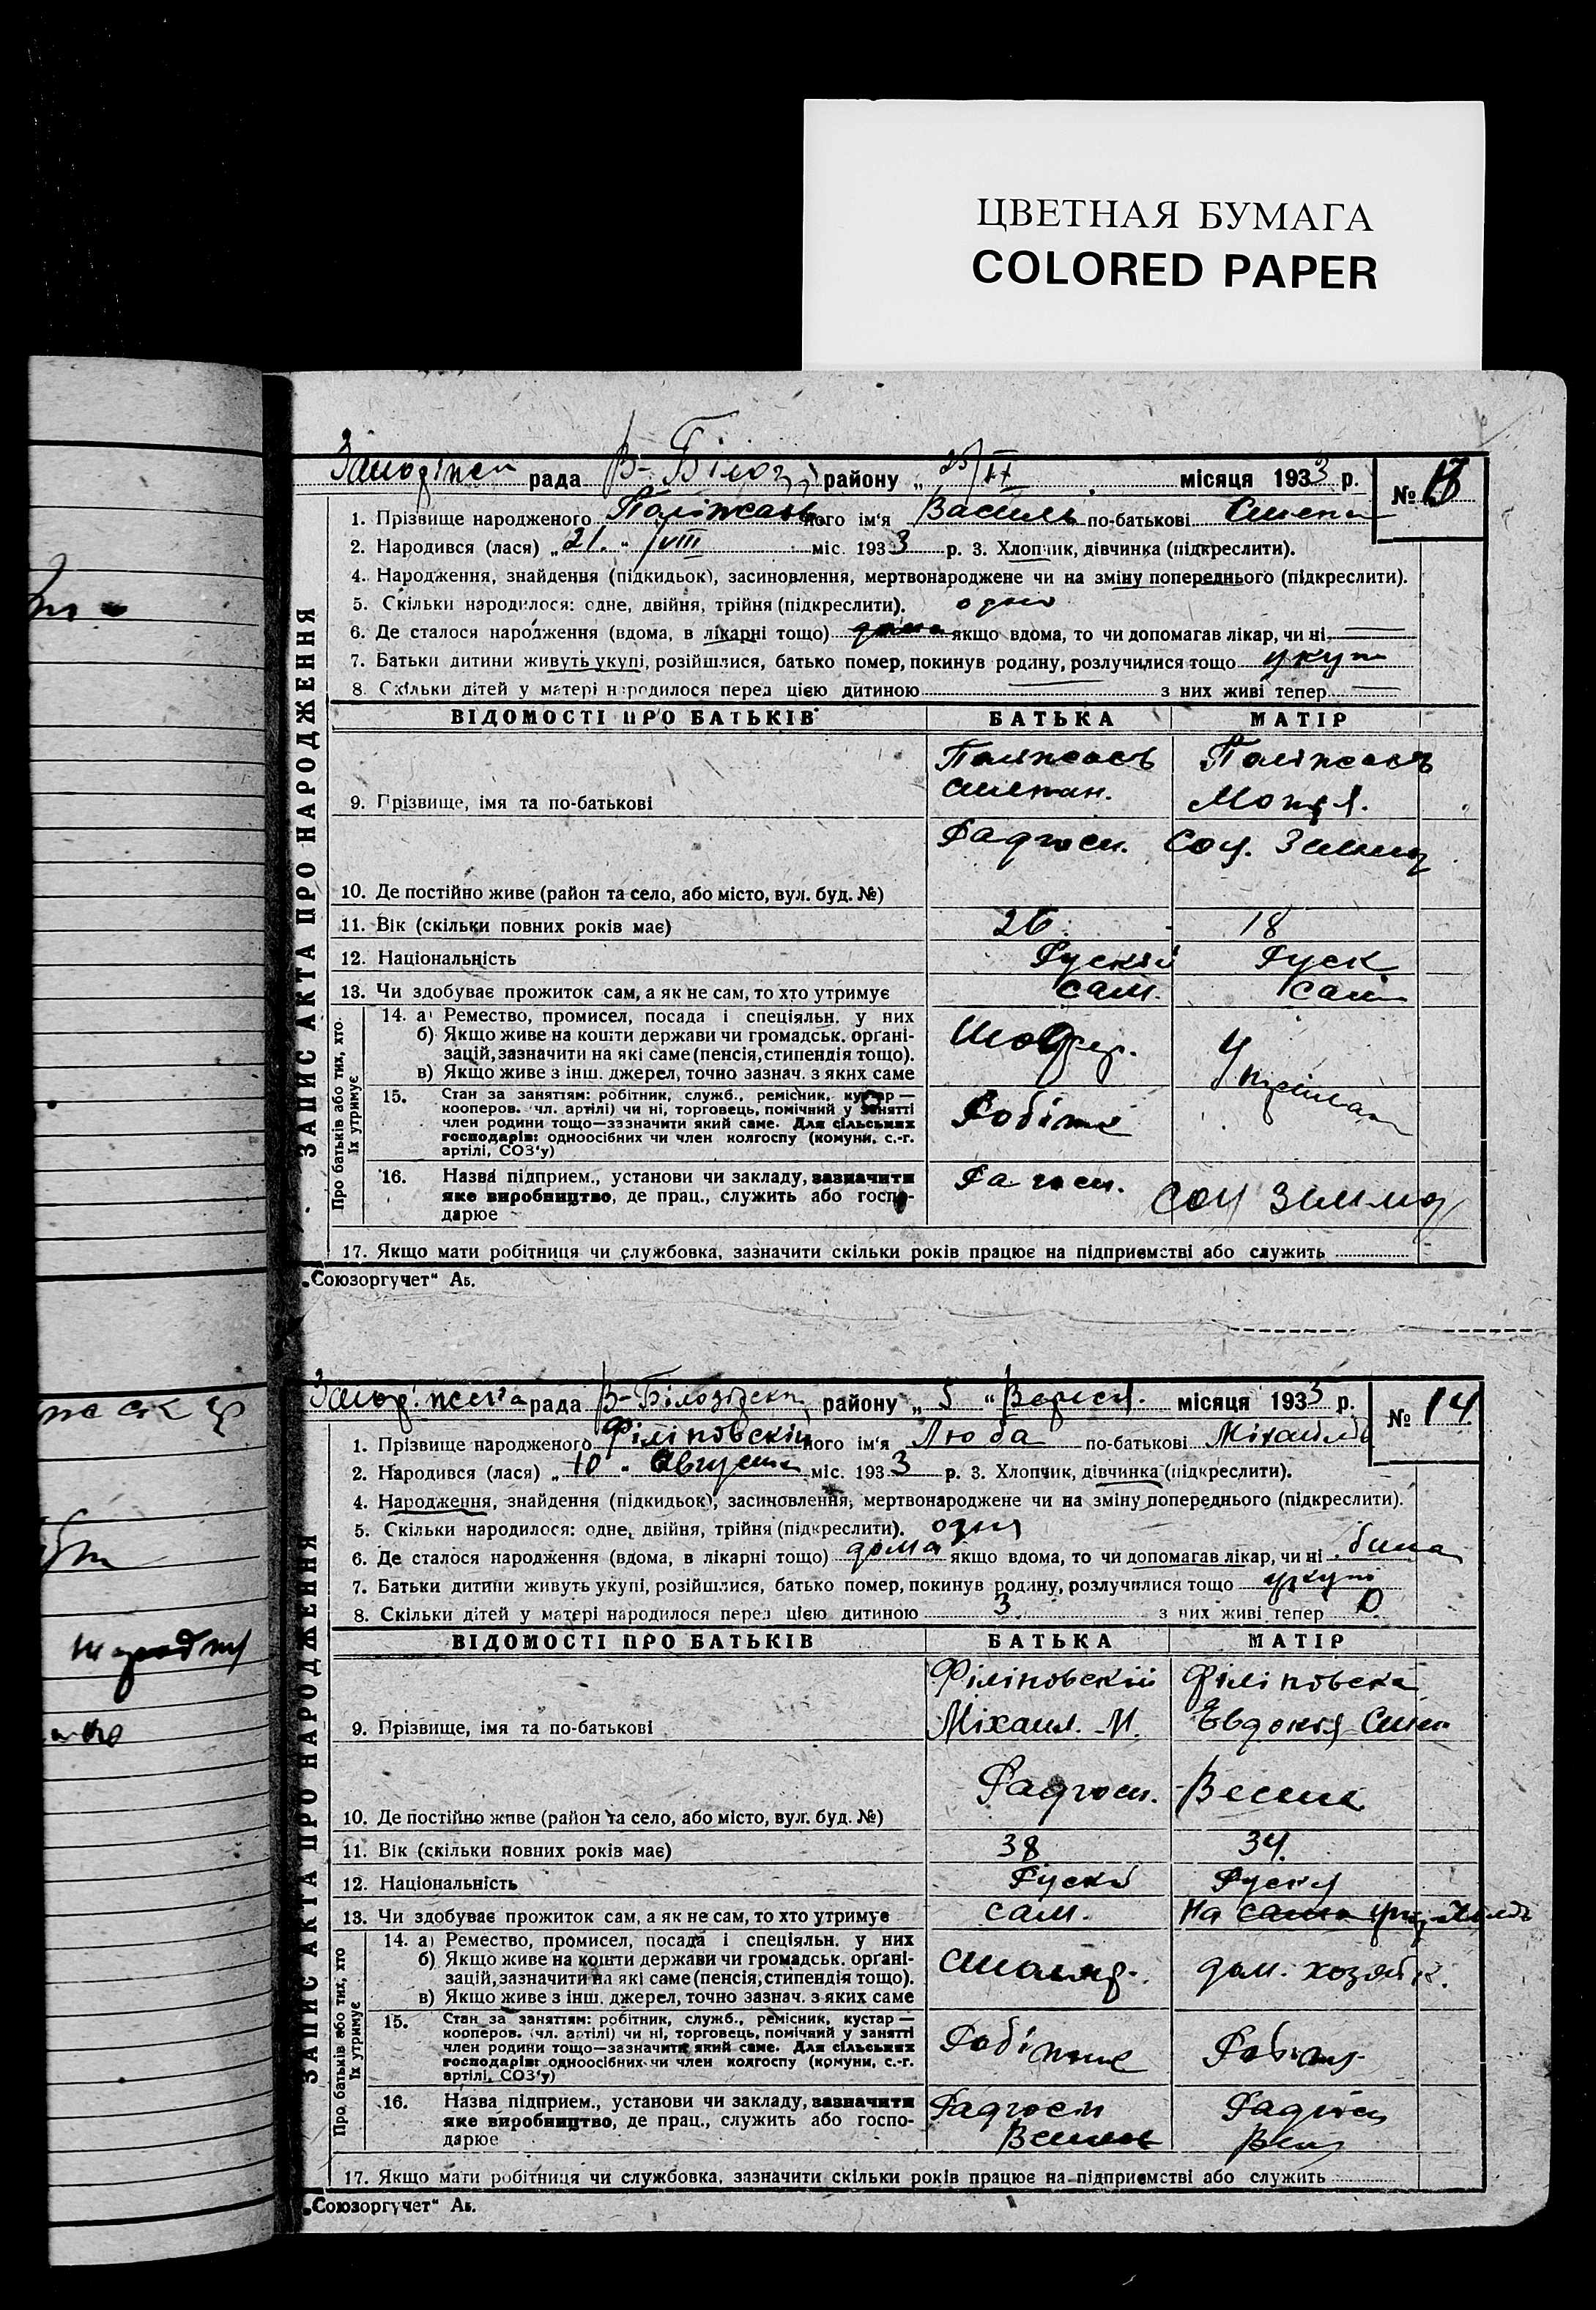 ЦВЕТНАЯ БУМАГА
COLORED PAPER
ЗАПИС АКТА ПРО НАРОДЖЕННЯ
рада В-Білоз. району „ 25/IX місяця 1933 р.
№
1. Прізвище народженого його ім‘я Василь по-батькові Степан
2. Народився (лася) „ 21. “ VIII міс. 1933 р. 3. Хлопчик, дівчинка (підкреслити).
4. Народження, знайдення (підкидьок), засиновлення, мертвонароджене чи на зміну попереднього (підкреслити).
5. Скільки народилося: одне, двійня, трійня (підкреслити). одно
6. Де сталося народження (вдома, в лікарні тощо) дома якщо вдома, то чи допомагав лікар, чи ні
7. Батьки дитини живуть укупі, розійшлися, батько помер, покинув родину, розлучилися тощо укупі
8. Скільки дітей у матері народилося перед цією дитиною з них живі тепер
ВІДОМОСТІ ПРО БАТЬКІВ БАТЬКА МАТІР
9. Прізвище, імя та по-батькові Степан.
Радгосп.
10. Де постійно живе (район та село, або місто, вул. буд. №)
11. Вік (скільки повних років має) 26. 18
12. Національність Руский Руск
13. Чи здобуває прожиток сам, а як не сам, то хто утримує сам. сам
Про батьків або тих, хто їх утримує
14. а) Ремество, промисел, посада і спеціяльн. у них
б) Якщо живе на кошти держави чи громадськ. органі-
зацій, зазначити на які саме (пенсія, стипендія тощо).
в) Якщо живе з інш. джерел, точно зазнач. з яких саме
15. Стан за заняттям: робітник, служб., ремісник, кустар —
кооперов. (чл. артілі) чи ні, торговець, помічний у занятті
член родини тощо—зазначити який саме. Для сільських
господарів: одноосібних чи член колгоспу (комуни, с.-г.
артілі, СОЗ‘у)
Робітн
16. Назва підприєм., установи чи закладу, зазначити
яке виробництво, де прац., служить або госпо-
дарює
17. Якщо мати робітниця чи службовка, зазначити скільки років працює на підприємстві або служить
„Союзоргучет“ Аб.
ЗАПИС АКТА ПРО НАРОДЖЕННЯ
рада В-Білозірськ району „ 5 “ Вересня. місяця 1933 р.
№ 14
1. Прізвище народженого Філіповскій його ім‘я Люба по-батькові Міхайлов
2. Народився (лася) „ 10 “ Августа міс. 1933 р. 3. Хлопчик, дівчинка (підкреслити).
4. Народження, знайдення (підкидьок), засиновлення, мертвонароджене чи на зміну попереднього (підкреслити).
5. Скільки народилося: одне, двійня, трійня (підкреслити).
6. Де сталося народження (вдома, в лікарні тощо) дома якщо вдома, то чи допомагав лікар, чи ні
7. Батьки дитини живуть укупі, розійшлися, батько помер, покинув родину, розлучилися тощо укупі
8. Скільки дітей у матері народилося перед цією дитиною 3. з них живі тепер
ВІДОМОСТІ ПРО БАТЬКІВ БАТЬКА МАТІР
Філіповскій Філіповска
9. Прізвище, імя та по-батькові Міхаил. М. Евдокія Степ
Радгосп. Весела
10. Де постійно живе (район та село, або місто, вул. буд. №)
11. Вік (скільки повних років має) 38 34.
12. Національність Рускій Руская
13. Чи здобуває прожиток сам, а як не сам, то хто утримує сам. На
Про батьків або тих, хто їх утримує
14. а) Ремество, промисел, посада і спеціяльн. у них
б) Якщо живе на кошти держави чи громадськ. органі-
зацій, зазначити на які саме (пенсія, стипендія тощо).
в) Якщо живе з інш. джерел, точно зазнач. з яких саме
дом. хозяйк.
15. Стан за заняттям: робітник, служб., ремісник, кустар —
кооперов. (чл. артілі) чи ні, торговець, помічний у занятті
член родини тощо—зазначити який саме. Для сільських
господарів: одноосібних чи член колгоспу (комуни, с.-г.
артілі, СОЗ‘у)
16. Назва підприєм., установи чи закладу, зазначити
яке виробництво, де прац., служить або госпо-
дарює
Радгосп Радгосп
17. Якщо мати робітниця чи службовка, зазначити скільки років працює на підприємстві або служить
„Союзоргучет“ Аб.